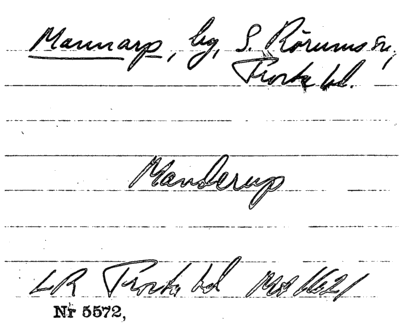 Mannarp, by, S. Rörums sn,
Frosta hd.
Manderup
LR Frosta hd
Nr 5572,